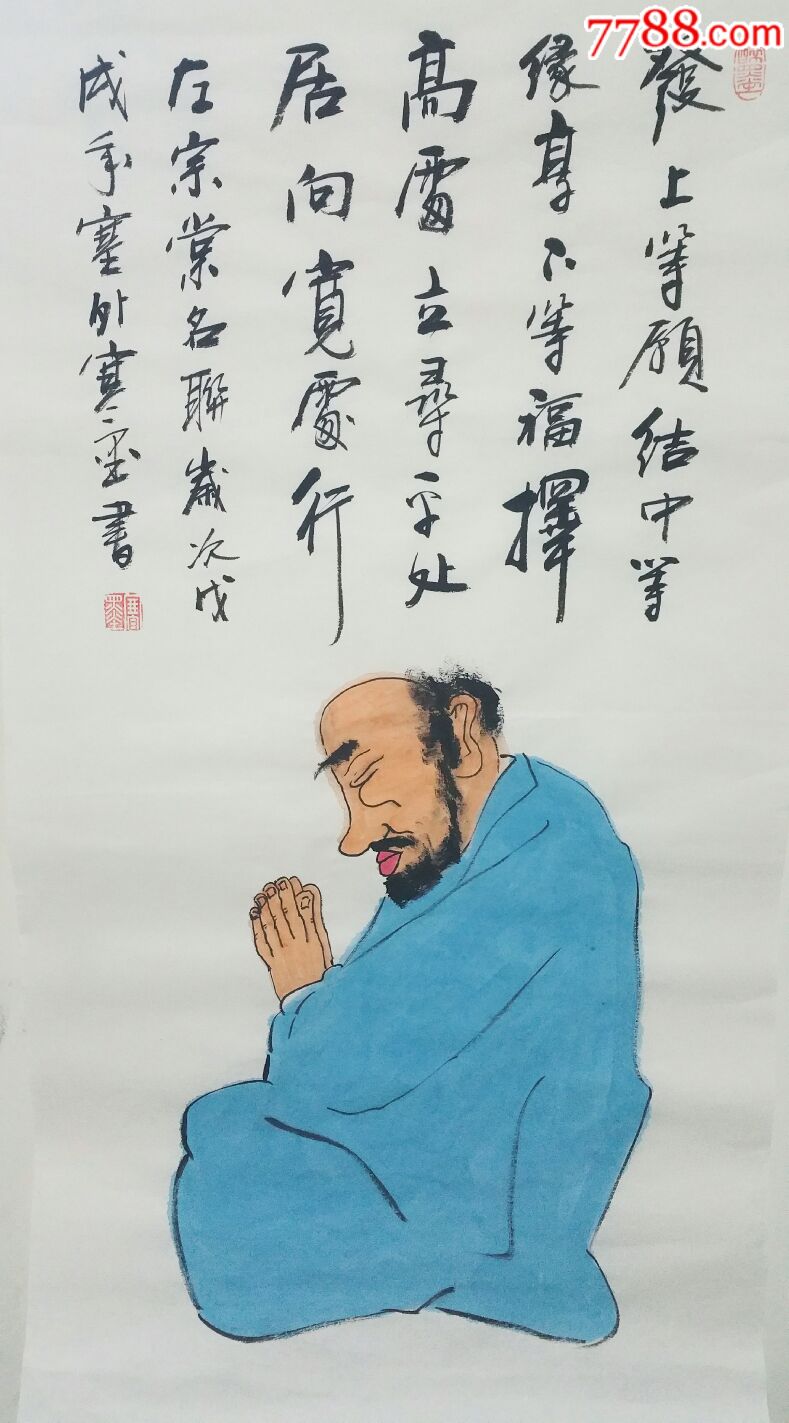 7788.com
發上等願結中等
緣享下等福擇
高處立尋平处
居向寬處行
左宗棠名聯歲次戊
戌年塞外寒墨書